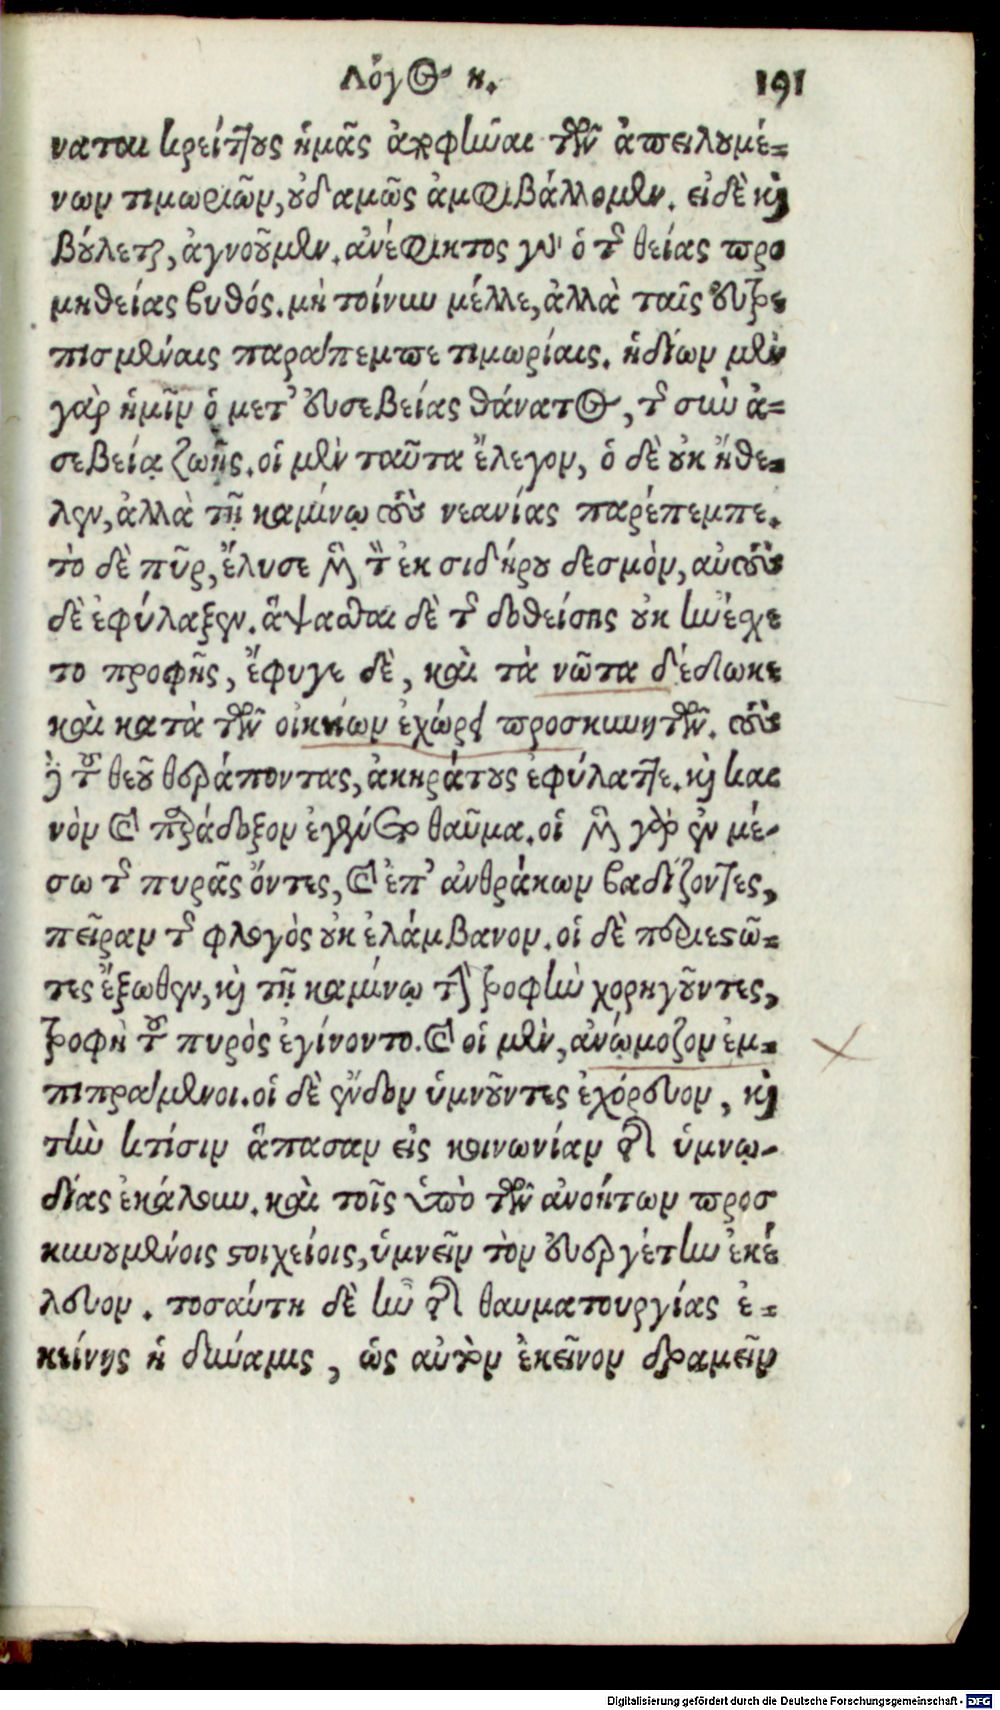 Λόγος η. 191
ναται κρείττους ἡμᾶς ἀποφῆναι τῶν ἀπειλουμέ-
νων τιμωριῶν, οὐδαμῶς ἀμφιβάλλομεν. εἰ δὲ καὶ
βούλεται, ἀγνοοῦμεν. ἀνέφικτος γὰρ ὁ τῆς θείας προ
μηθείας βυθός. μὴ τοίνυν μέλλε, ἀλλὰ ταῖς εὐτρε
πισμέναις παράπεμπε τιμωρίαις. ἡδίων μὲν
γὰρ ἡμῖν ὁ μετ᾽ εὐσεβείας θάνατος, τῆς σὺν ἀ-
σεβείᾳ ζωῆς. οἱ μὲν ταῦτα ἔλεγον, ὁ δὲ οὐκ ἤθε-
λεν, ἀλλὰ τῇ καμίνῳ τοὺς νεανίας παρέπεμπε.
τὸ δὲ πῦρ, ἔλυσε μὲν τὸν ἐκ σιδήρου δεσμὸν, αὐτοὺς
δὲ ἐφύλαξεν. ἅψασθαι δὲ τῆς δοθείσης οὐκ ἠνέχε
το τροφῆς, ἔφυγε δὲ, καὶ τὰ νῶτα δέδωκε
καὶ κατὰ τῶν οἰκείων ἐχώρει προσκυνητῶν. τοὺς
δὲ τοῦ θεοῦ θεράποντας, ἀκηράτους ἐφύλαττε. καὶ και
νὸν καὶ παράδοξον ἐγένετο θαῦμα. οἱ μὲν γὰρ ἐν μέ-
σῳ τῆς πυρᾶς ὄντες, καὶ ἐπ᾽ ἀνθράκων βαδίζοντες,
πεῖραν τῆς φλογὸς οὐκ ἐλάμβανον. οἱ δὲ περιεστῶ-
τες ἔξωθεν, καὶ τῇ καμίνῳ τὴν τροφὴν χορηγοῦντες,
τροφὴ τοῦ πυρὸς ἐγίνοντο. καὶ οἱ μὲν, ἀνώμοζον ἐμ-
πιπράμενοι. οἱ δὲ ἔνδον ὑμνοῦντες ἐχόρευον, καὶ
τὴν κτίσιν ἅπασαν εἰς κοινωνίαν τῆς ὑμνῳ-
δίας ἐκάλουν. καὶ τοῖς ὑπὸ τῶν ἀνοήτων προσ
κυνουμένοις στοιχείοις, ὑμνεῖν τὸν εὐεργέτην ἐκέ
λευον. τοσαύτη δὲ ἦν τῆς θαυματουργίας ἐ-
κείνης ἡ δύναμις, ὡς αὐτὸν ἐκεῖνον δραμεῖν
Digitalisierung gefördert durch die Deutsche Forschungsgemeinschaft - DFG